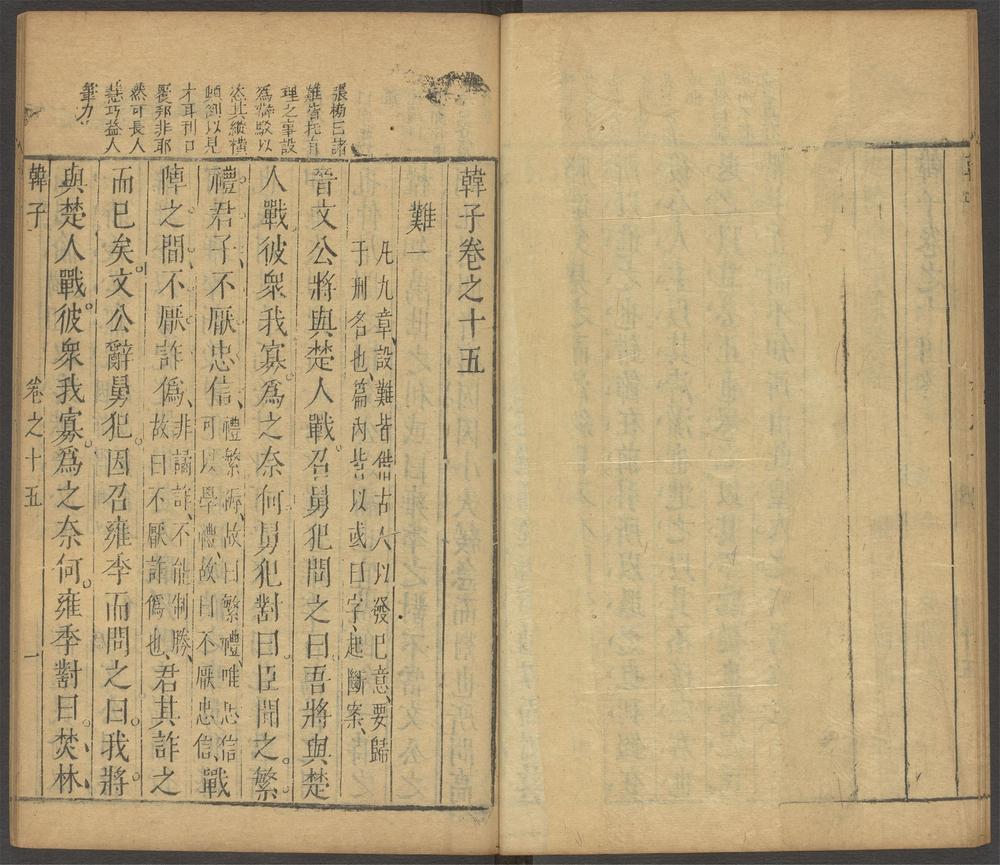 韓子卷之十五
難一
凡九章、設難皆借古人以發己意、要歸
于刑名也、篇內皆以或曰字、起斷案、
晉文公將與楚人戰。召舅犯問之曰。吾將與楚
人戰彼衆我寡。爲之奈何。舅犯對曰。臣聞之。繁
禮君子。不厭忠信、禮繁縟、故曰繁禮、唯忠信可以學禮、故曰不厭忠信、戰
陣之間。不厭詐僞、非譎詐、不能制勝、故曰不厭詐僞也、君其詐之
而已矣。文公辭舅犯。因召雍季而問之曰。我將
與楚人戰。彼衆我寡。爲之奈何。雍季對曰。焚林、
韓子 卷之十五 一
張榜曰諸
難皆托有
理之事設
爲辯駁以
恣其縱橫
顛劉以見
才耳刊口
憂邦非耶
然可長人
慧巧益人
筆力